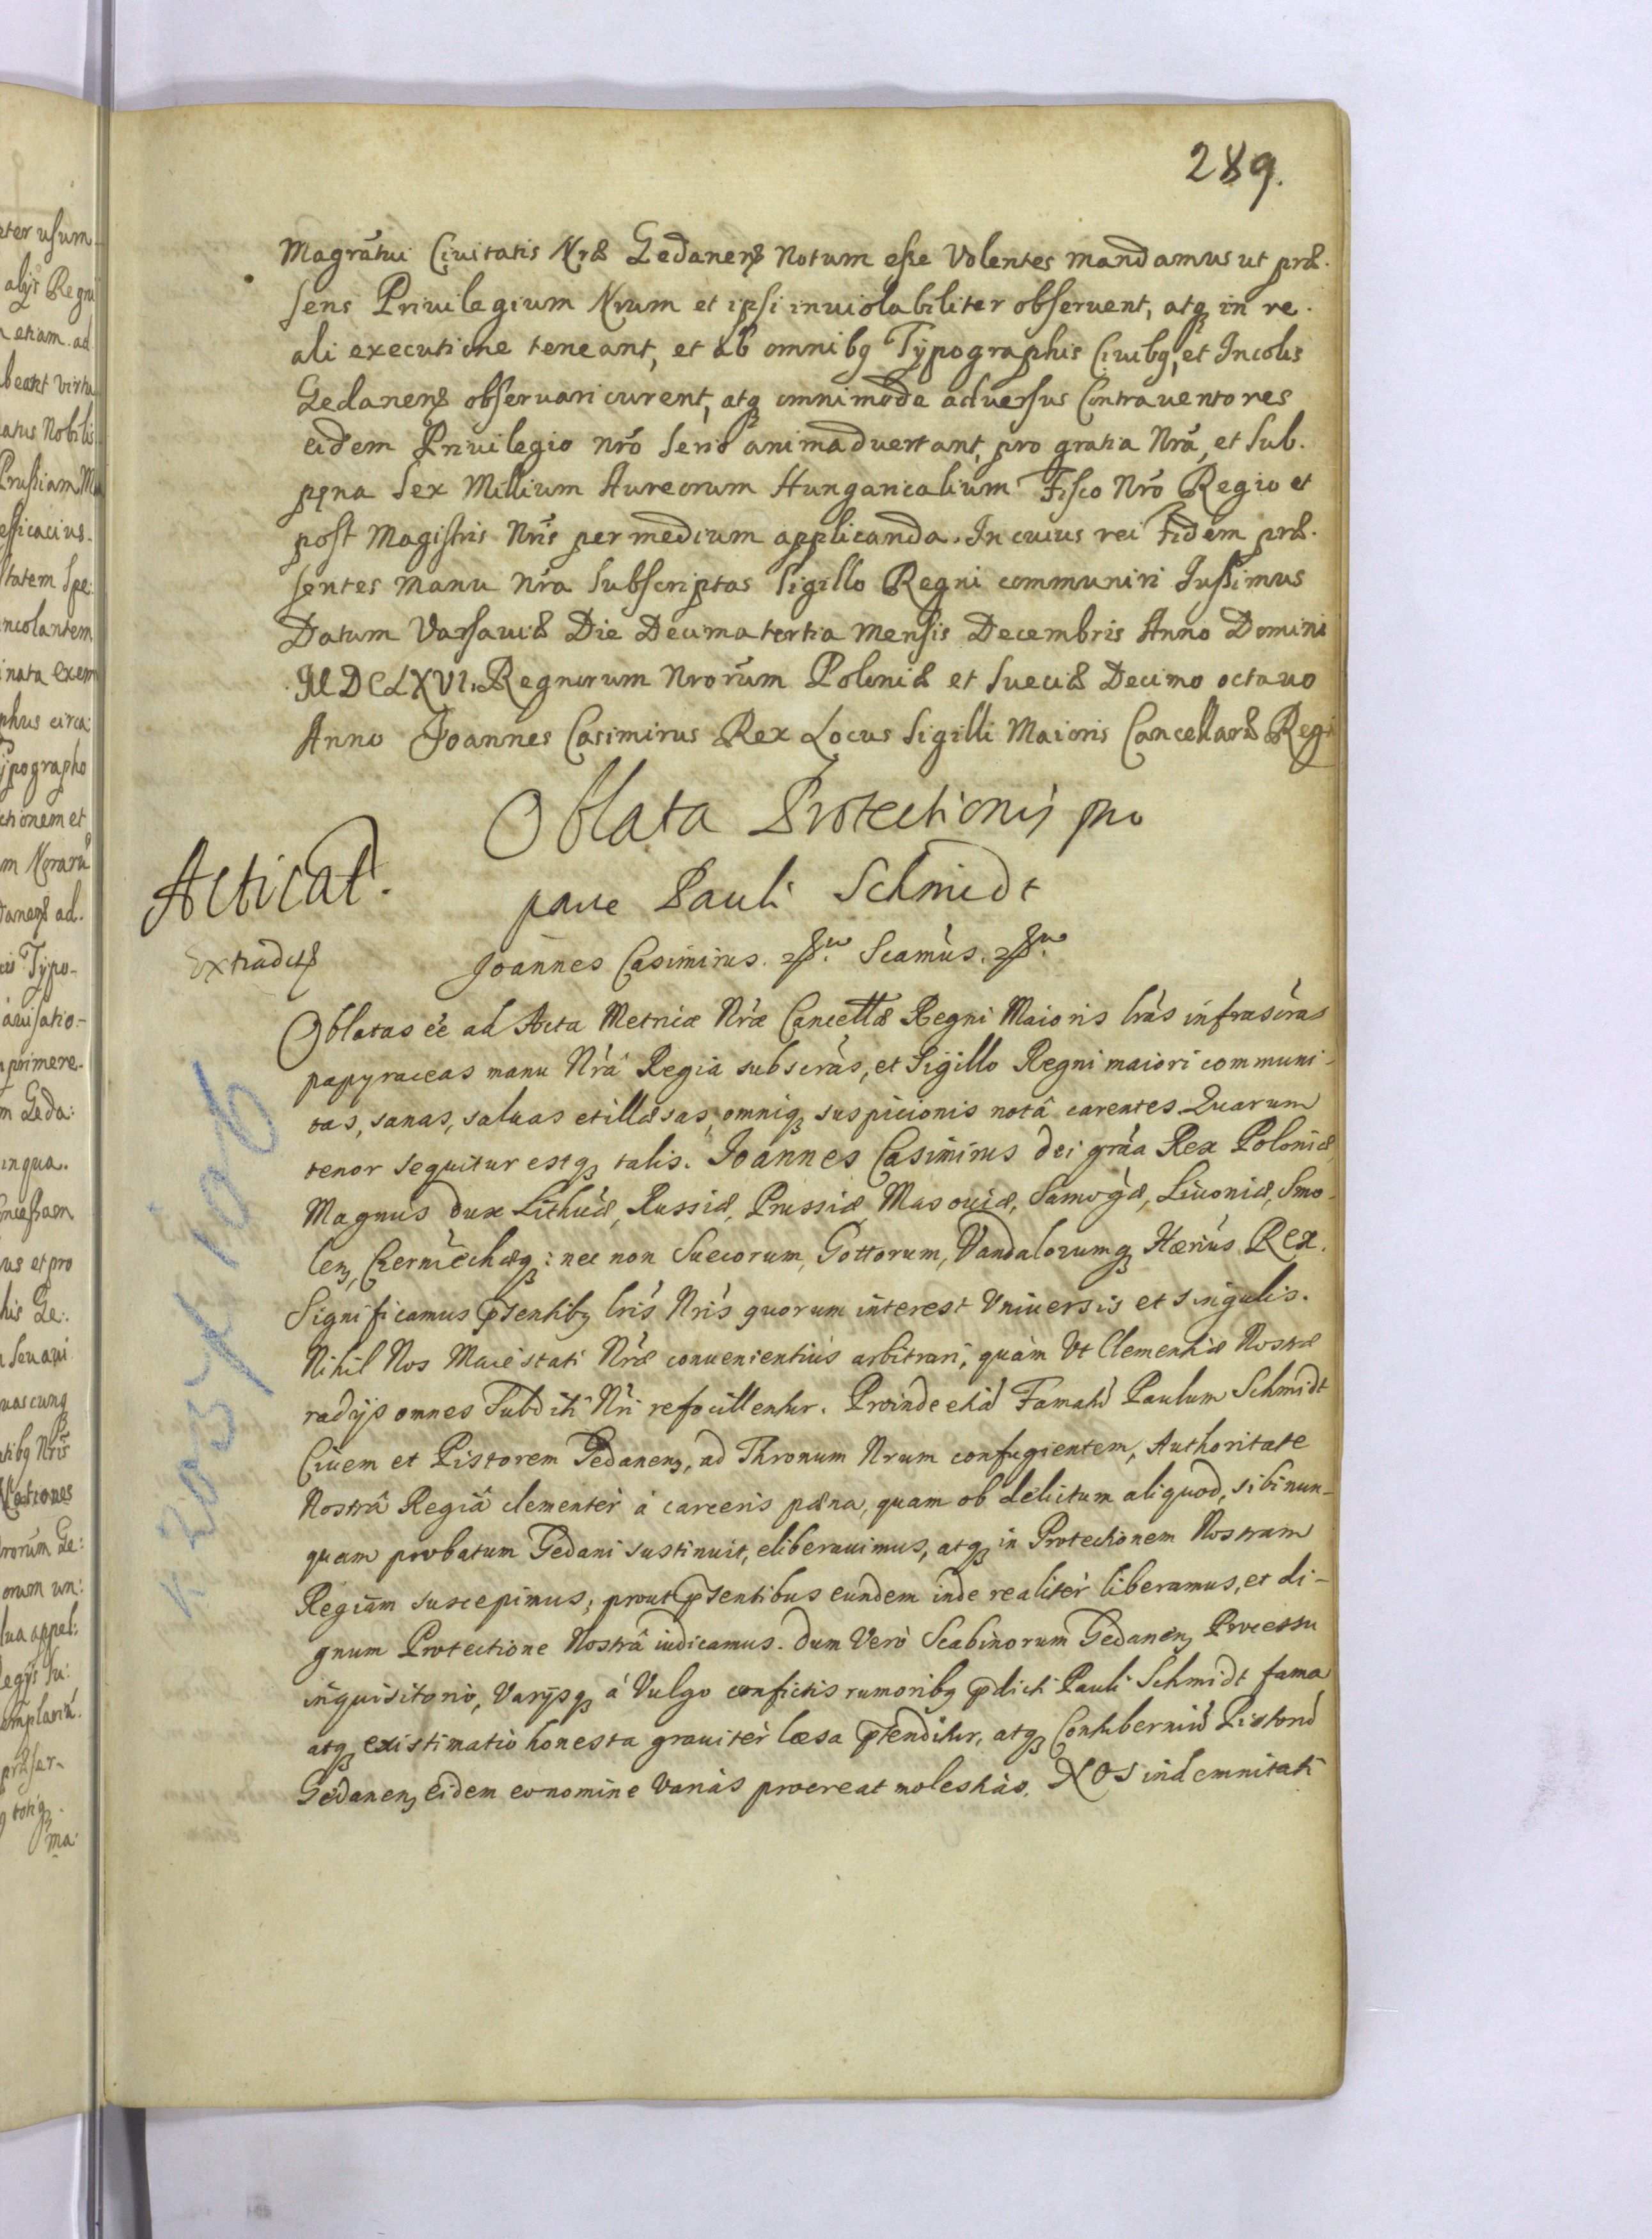 289.
Magrãtui Ciuitatis Nræ Gedanens Notum esse Volentes mandamus ut præ-
sens Priuilegium Nrum et ipsi inuiolabiliter obseruent, atq in re-
ali executione teneant, et ab omnibq Typographis Ciuibq, et Incolis
Gedanens obseruari curent, atq omnimode aduersus Contrauentores
eidem Priuilegio nrõ serio animaduertant, pro gratia Nrã, et sub.
pęna sex Millium Aureorum Hungaricalium Fisco Nrõ Regio et
post Magistris Nrĩs per medium applicanda. In cuius rei Fidem præ-
sentes manu Nrã subscriptas Sigillo Regni communiri Iussimus
Datum Varsauiæ Die Decima tertia Mensis Decembris Anno Domini
MDCLXVI. Regnorum Nrorũm Poloniæ et Sueciæ Decimo octauo
Anno Joannes Casimirus Rex Locus Sigilli Maioris Cancellariæ Regni
Oblata Protectionis pro
parte Pauli Schmidt
Acticat.
Extradit
Joannes Casimirus. Scamus.
Oblatas eẽ ad Acta Metricæ Nræ Cancellæ Regni Maioris lrãs infrascrãs
papyraceas manu Nrã Regia subscrãs, et Sigillo Regni maiori communi-
tas, sanas, saluas et illæsas, omniq suspicionis notâ carentes Quarum
tenor sequitur estq talis. Joannes Casimirus Dei grãa Rex Poloniæ
Magnus Dux Lithuæ, Russiæ, Prussiæ Masouiæ, Samogæ, Liuoniæ, Smo-
len, Czerniechæq: nec non Suecorum, Gottorum, Vandalorumq Hærius Rex.
Significamus pñsentibq lrĩs Nrĩs quorum interest Vniuersis et singulis.
Nihil Nos Maiestati Nræ conuenientius arbitrari, quàm Vt Clementiæ Nostræ
radijs omnes Subditi Nri refocillentur. Proinde etiã Famatũ Paulum Schmidt
Ciuem et Pistorem Gedanen, ad Thronum Nrum confugientem, Authoritate
Nostrâ Regiâ clementer à carceris pæna, quam ob delictum aliquod, sibi nun-
quam probatum Gedani sustinuit, eliberauimus, atq in Protectionem Nostram
Regiam suscepimus; prout pñsentibus eundem inde realiter liberamus, et di-
gnum Protectione Nostrâ iudicamus. Dum Verò Scabinorum Gedanen Processu
inquisitorio, Varijsq à Vulgo confictis rumoribq pdicti Pauli Schmidt fama
atq existimatio honesta grauiter læsa ptenditur, atq Contuberniũ Pistorũ
Gedanen eidem eo nomine Varias procreat molestias. NOS indemnitati